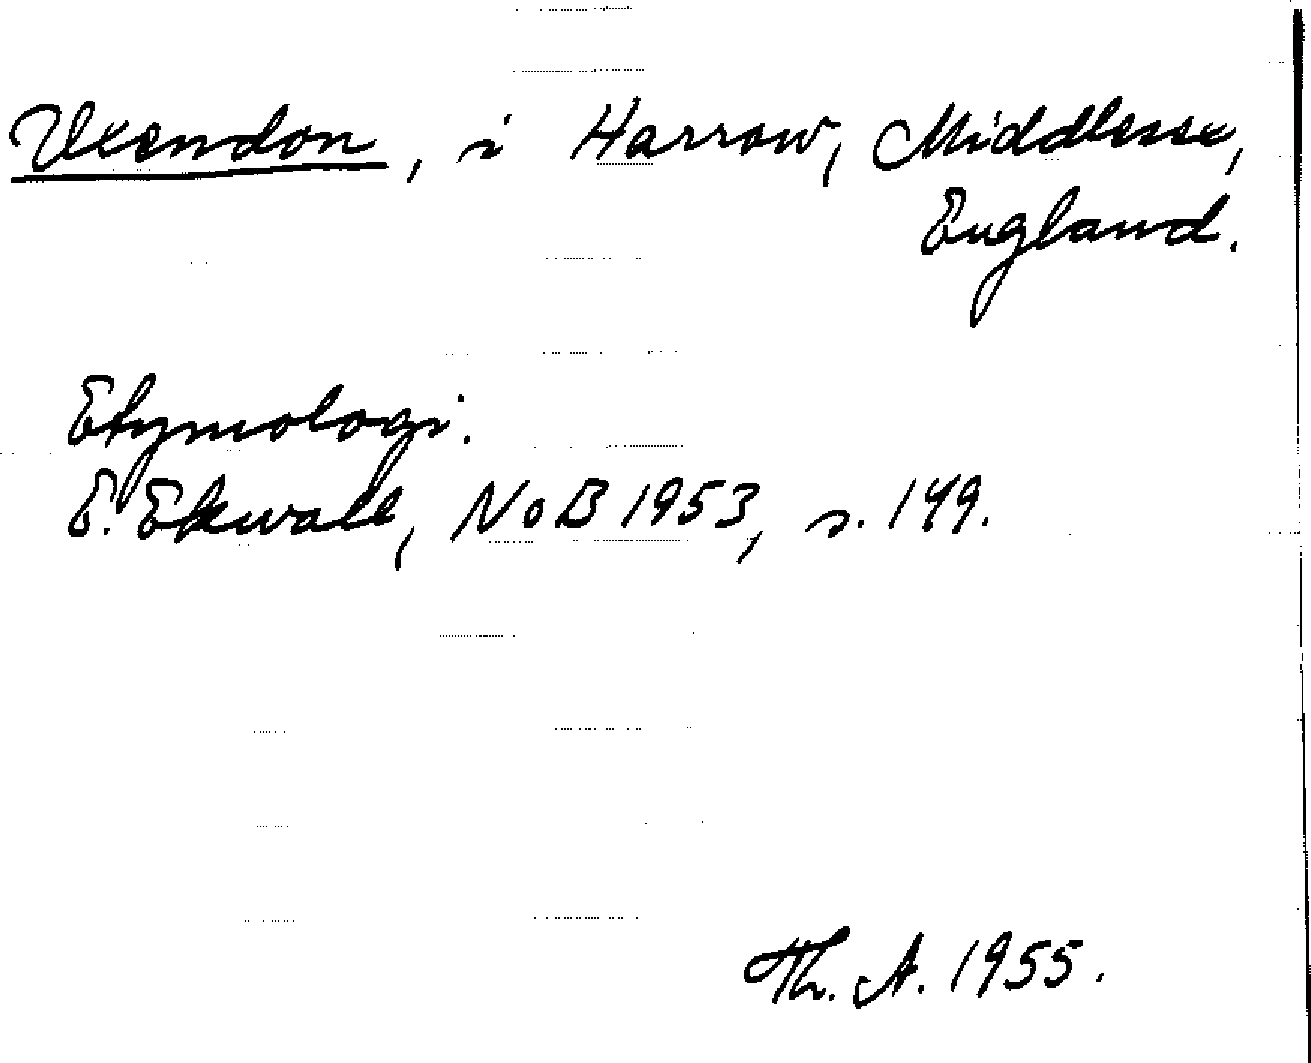 Uxendon, i Harrow, Middlesex,
England.
Etymologi.
E. Ekwall, NoB 1953, s. 149.
Th. A. 1955.